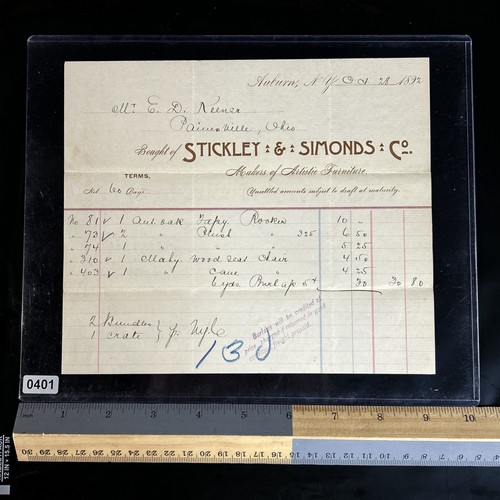 Auburn, N.Y. Oct 28 1892
Mr. E. D. Keener
Painesville, Ohio
Bought of STICKLEY & SIMONDS Co.
Makers of Artistic Furniture.
TERMS,
Net 60 Days
Unsettled amounts subject to draft at maturity.
No 81 ✓ 1 Ant. oak Tapy. Rocker 10 –
" 73 ✓ 2 " Plush " 325 6 50
" 74 1 " " " 5 25
" 310 ✓ 1 Mahy wood seat Chair 4 50
" 403 ✓ 1 " cane " 4 25
6 yds Burlap 5¢ 30 30 80
2 Bundles
1 crate
Burlaps will be credited at
13
0401
1 2 3 4 5 6 7 8 9 10
30 29 28 27 26 25 24 23 22 21 20 19 18 17 16 15 14 13 12 11 10 9 8 7 6 5
12 IN × 15.5 IN